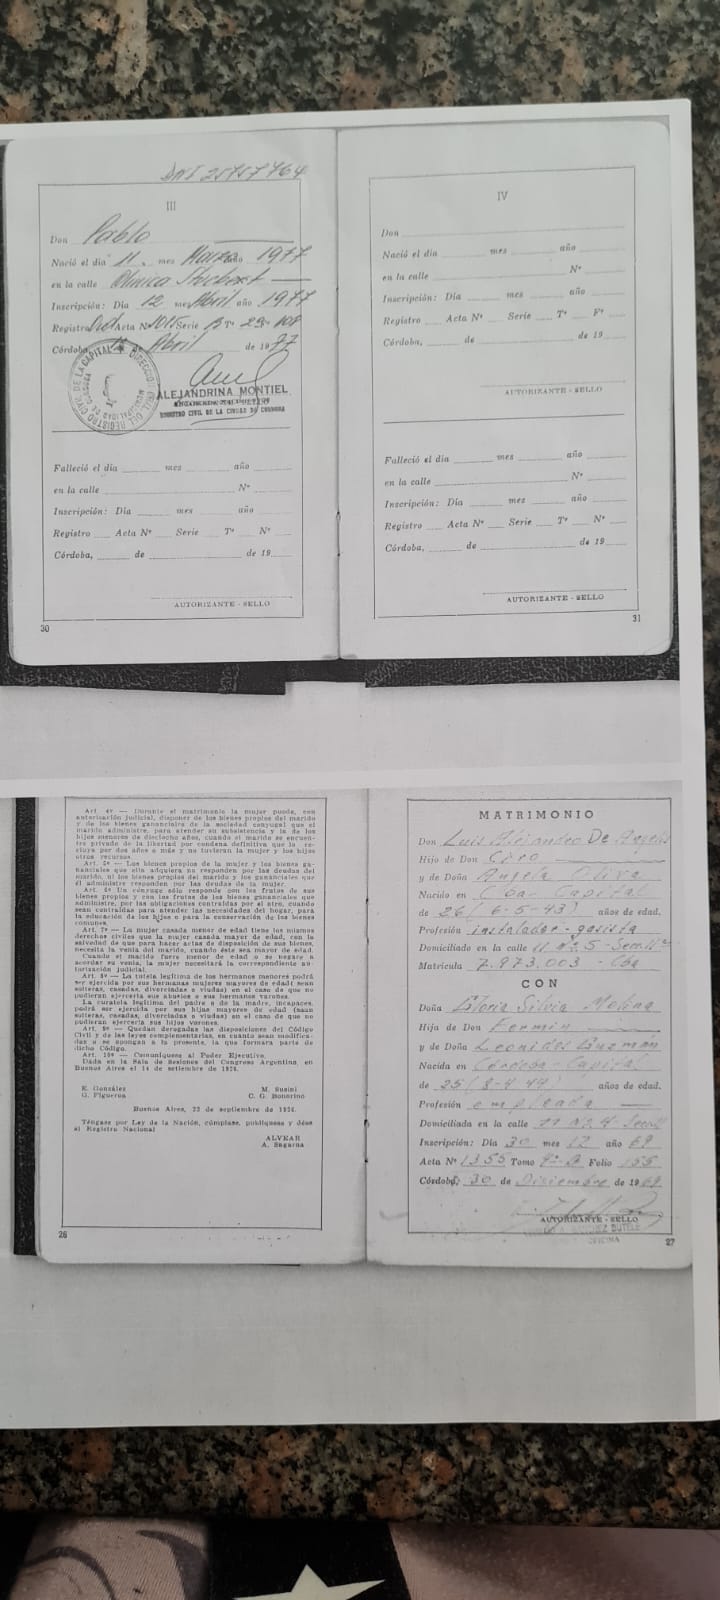 DNI 25757764
III
Don Pablo
Nació el dia 11 mes Marzo año 1977
en la calle Clinica
Inscripción: Dia 12 mes Abril año 1977
Registro Acta Nº 1015 Serie B Tº 29 108
Córdoba, Abril de 1977
DIRECCION GRAL. DEL REGISTRO CIVIL DE LA CAPITAL
MUNICIPALIDAD DE CORDOBA
ALEJANDRINA MONTIEL
REGISTRO CIVIL DE LA CIUDAD DE CORDOBA
Falleció el dia mes año
en la calle Nº
Inscripción: Dia mes año
Registro Acta Nº Serie Tº Nº
Córdoba, de de 19
AUTORIZANTE - SELLO
30
IV
Don
Nació el dia mes año
en la calle Nº
Inscripción: Dia mes año
Registro Acta Nº Serie Tº Fº
Córdoba, de de 19
AUTORIZANTE - SELLO
Falleció el dia mes año
en la calle Nº
Inscripción: Dia mes año
Registro Acta Nº Serie Tº Nº
Córdoba, de de 19
AUTORIZANTE - SELLO
31
Art. 4º — Durante el matrimonio la mujer puede, con
autorización judicial, disponer de los bienes propios del marido
y de los bienes gananciales de la sociedad conyugal que el
marido administre, para atender su subsistencia y la de los
hijos menores de dieciocho años, cuando el marido se encuen-
tre privado de la libertad por condena definitiva que la re-
cluya por dos años o más y no tuvieran la mujer y los hijos
otros recursos.
Art. 5º — Los bienes propios de la mujer y los bienes ga-
nanciales que ella adquiera no responden por las deudas del
marido, ni los bienes propios del marido y los gananciales que
él administre responden por las deudas de la mujer.
Art. 6º Un cónyuge sólo responde con los frutos de sus
bienes propios y con los frutos de los bienes gananciales que
administre, por las obligaciones contraídas por el otro, cuando
sean contraídas para atender las necesidades del hogar, para
la educación de los hijos o para la conservación de los bienes
comunes.
Art. 7º — La mujer casada menor de edad tiene los mismos
derechos civiles que la mujer casada mayor de edad, con la
salvedad de que para hacer actas de disposición de sus bienes,
necesita la venia del marido, cuando éste sea mayor de edad.
Cuando el marido fuere menor de edad o se negare a
acordar su venia, la mujer necesitará la correspondiente au-
torización judicial.
Art. 8º — La tutela legítima de los hermanos menores podrá
ser ejercida por sus hermanas mujeres mayores de edad (sean
solteras, casadas, divorciadas o viudas) en el caso de que no
pudieran ejercerla sus abuelos o sus hermanos varones.
La curatela legítima del padre o de la madre, incapaces,
podrá ser ejercida por sus hijas mayores de edad (sean
solteras, casadas, divorciadas o viudas) en el caso de que no
pudieran ejercerla sus hijos varones.
Art. 9º — Quedan derogadas las disposiciones del Código
Civil y de las leyes complementarias, en cuanto sean modifica-
das o se opongan a la presente, la que formara parte de
dicho Código.
Art. 10º — Comuníquese al Poder Ejecutivo.
Dada en la Sala de Sesiones del Congreso Argentino, en
Buenos Aires el 14 de setiembre de 1926.
E. González M. Susini
G. Figueroa C. G. Bonorino
Buenos Aires, 22 de septiembre de 1926.
Téngase por Ley de la Nación, cúmplase, publíquese y dése
al Registro Nacional
ALVEAR
A. Sagarna
26
MATRIMONIO
Don Luis Alejandro De Angelis
Hijo de Don Ciro
y de Doña Angela Oliva
Nacido en Cba Capital
de 26 (6-5-43) años de edad.
Profesión instalador - gasista
Domiciliado en la calle 11 nº 5 -
Matricula 7.973.003 - Cba
CON
Doña Gloria Silvia Molina
Hija de Don Fermin
y de Doña Leonides Guzmán
Nacida en Córdoba - Capital
de 25 (8-4-44) años de edad.
Profesión empleada
Domiciliada en la calle
Inscripción: Dia 30 mes 12 año 69
Acta Nº 1355 Tomo Folio 155
Córdoba, 30 de Diciembre de 1969
AUTORIZANTE - SELLO
27